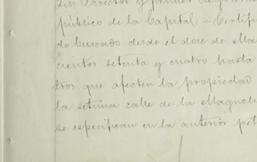 público de la Capital - Certifi
do buscado desde el doce de Ma
cientos setenta y cuatro hasta
tros que afecten la propiedad
la setima calle de la Magnolia
se especifican en la anterior pet